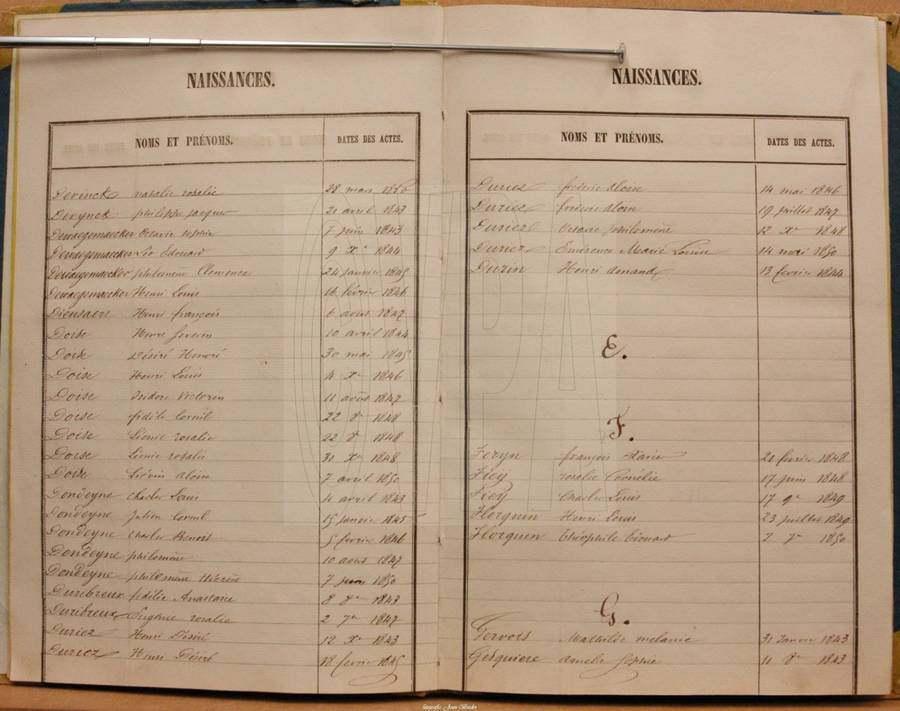 NAISSANCES.
NOMS ET PRÉNOMS. DATES DES ACTES.
Devinck natalie rosalie 28 mars
Devynck philippe jacques 21 avril 1843
Dewaegemaecker Octavie sophie 7 juin 1843
Dewaegemaecker Léo Edouard 9 Xe 1844
Dewaegemaecker philomène Clemence 24 janvier 1845
Dewaegemaecker Henri Louis 16 février 1846
Dieusaert Henri françois 6 avril 1847
Doise Henri Severin 10 avril 1844
Doise Désiré Honoré 30 mai 1845
Doise Henri Louis 4 Xe 1846
Doise Isidore Victorin 11 août 1847
Doise fidèle Cornil 22 8e 1848
Doise Léonie rosalie 22 8e 1848
Doise Léonie rosalie 31 Xe 1848
Doise Liévin aloïse 7 avril 1850
Dondeyne Charles Louis 4 avril 1843
Dondeyne Julien Cornil 15 janvier 1845
Dondeyne Charles Benoit 5 février 1846
Dondeyne philomène 10 août 1847
Dondeyne philomène 7 juin 1850
Duribreux fidélie Anastasie 8 8e 1843
Duribreux Eugénie rosalie 2 7e 1847
Duriez Henri Désiré 12 Xe 1843
Duriez Henri Désiré 18 février 1845
NAISSANCES.
NOMS ET PRÉNOMS. DATES DES ACTES.
Duriez fréderic aloïse 14 mai 1846
Duriez frederic aloise 19 juillet 1847
Duriez Octavie philomène 12 Xe 1848
Duriez Emérence Marie Louise 14 mai 1850
Durin Henri amand 13 fevrier 1844
E.
F.
Feryn françois Xavier 21 fevrier 1848
Fiey rosalie Cornélie 17 juin 1848
Fiey Charles Louis 17 9e 1849
Florquin Henri Louis 23 juillet 1849
Florquin théophile Edouard 2 7e 1850
G.
Gervois Mathilde melanie 31 Janvier 1843
Gesquiere amelie Sophie 11 8e 1843